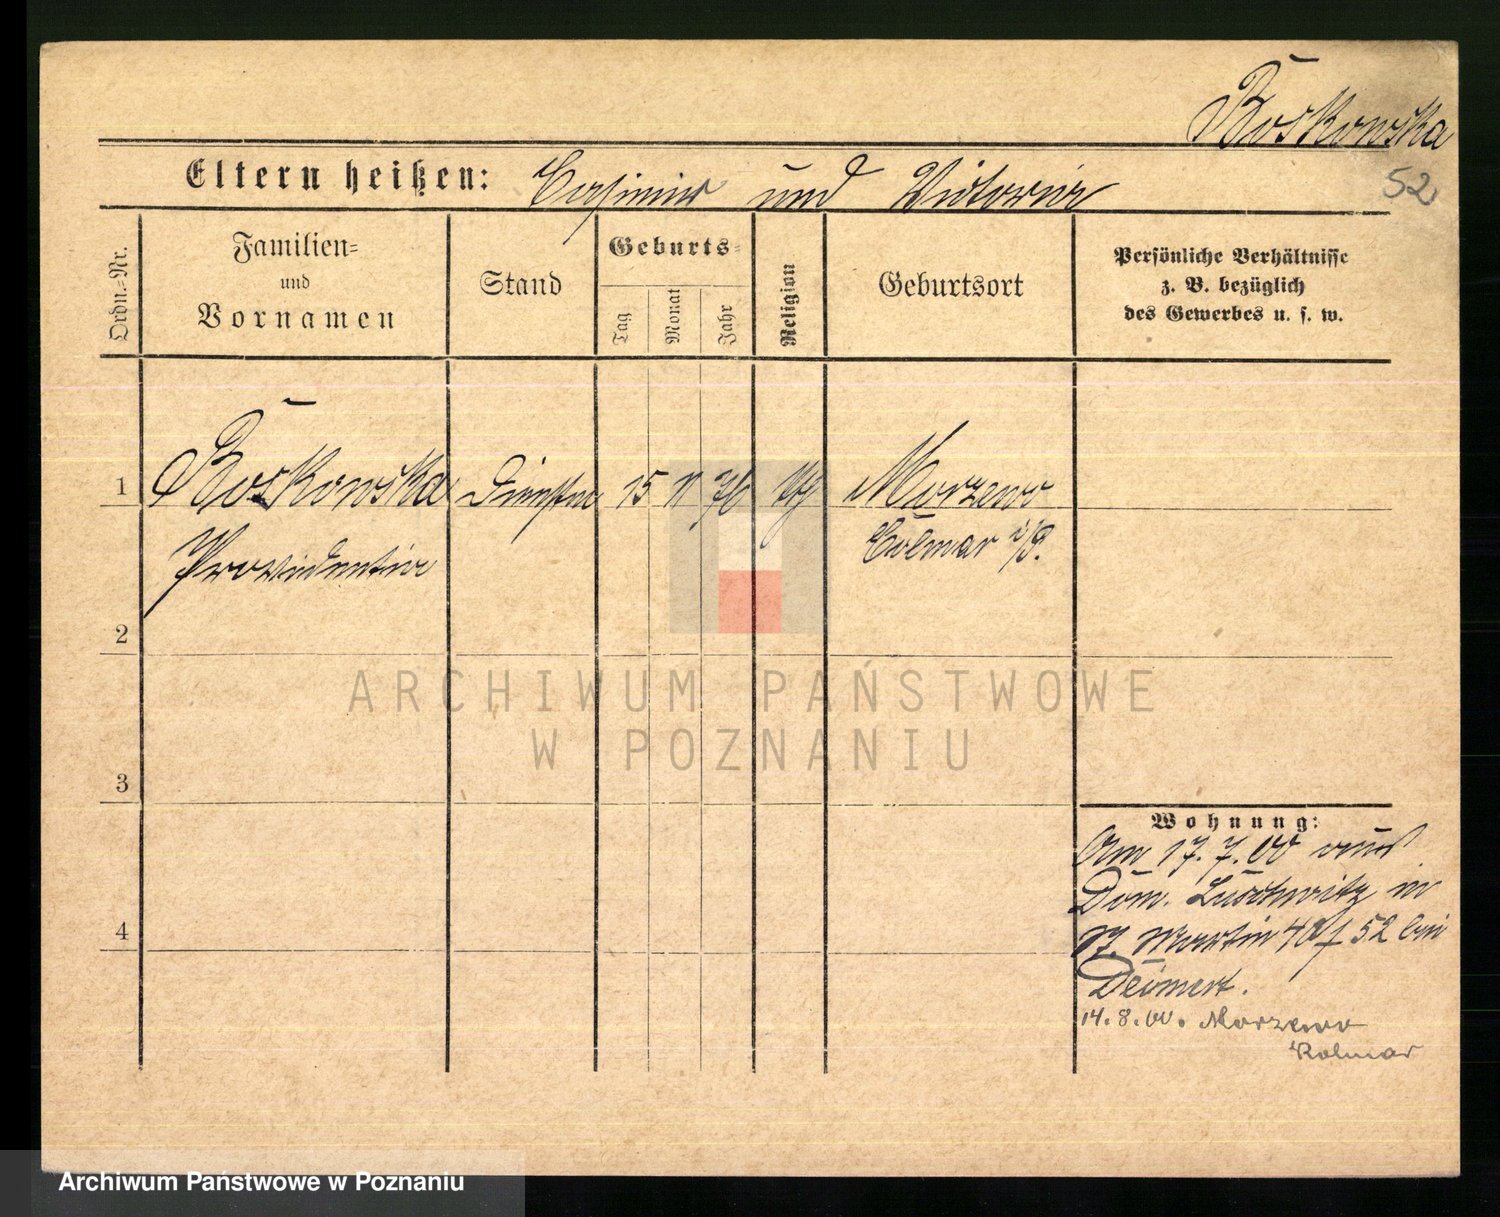 Boskowska
52
Eltern heißen: Casimir und Victoria
Ordn.=Nr.
Familien=
und
Vornamen
Stand
Geburts=
Tag
Monat
Jahr
Religion
Geburtsort
Persönliche Verhältnisse
z. B. bezüglich
des Gewerbes u. s. w.
1 Boskowska 15 11 76 Morzewo
Providentia Colmar i/P.
2
3
4
Wohnung:
Am 17.7.00 aus
Dom. Luschwitz in
St. Martin 52 bei
14.8.00. Morzewo
Kolmar
ARCHIWUM PAŃSTWOWE
W POZNANIU
Archiwum Państwowe w Poznaniu